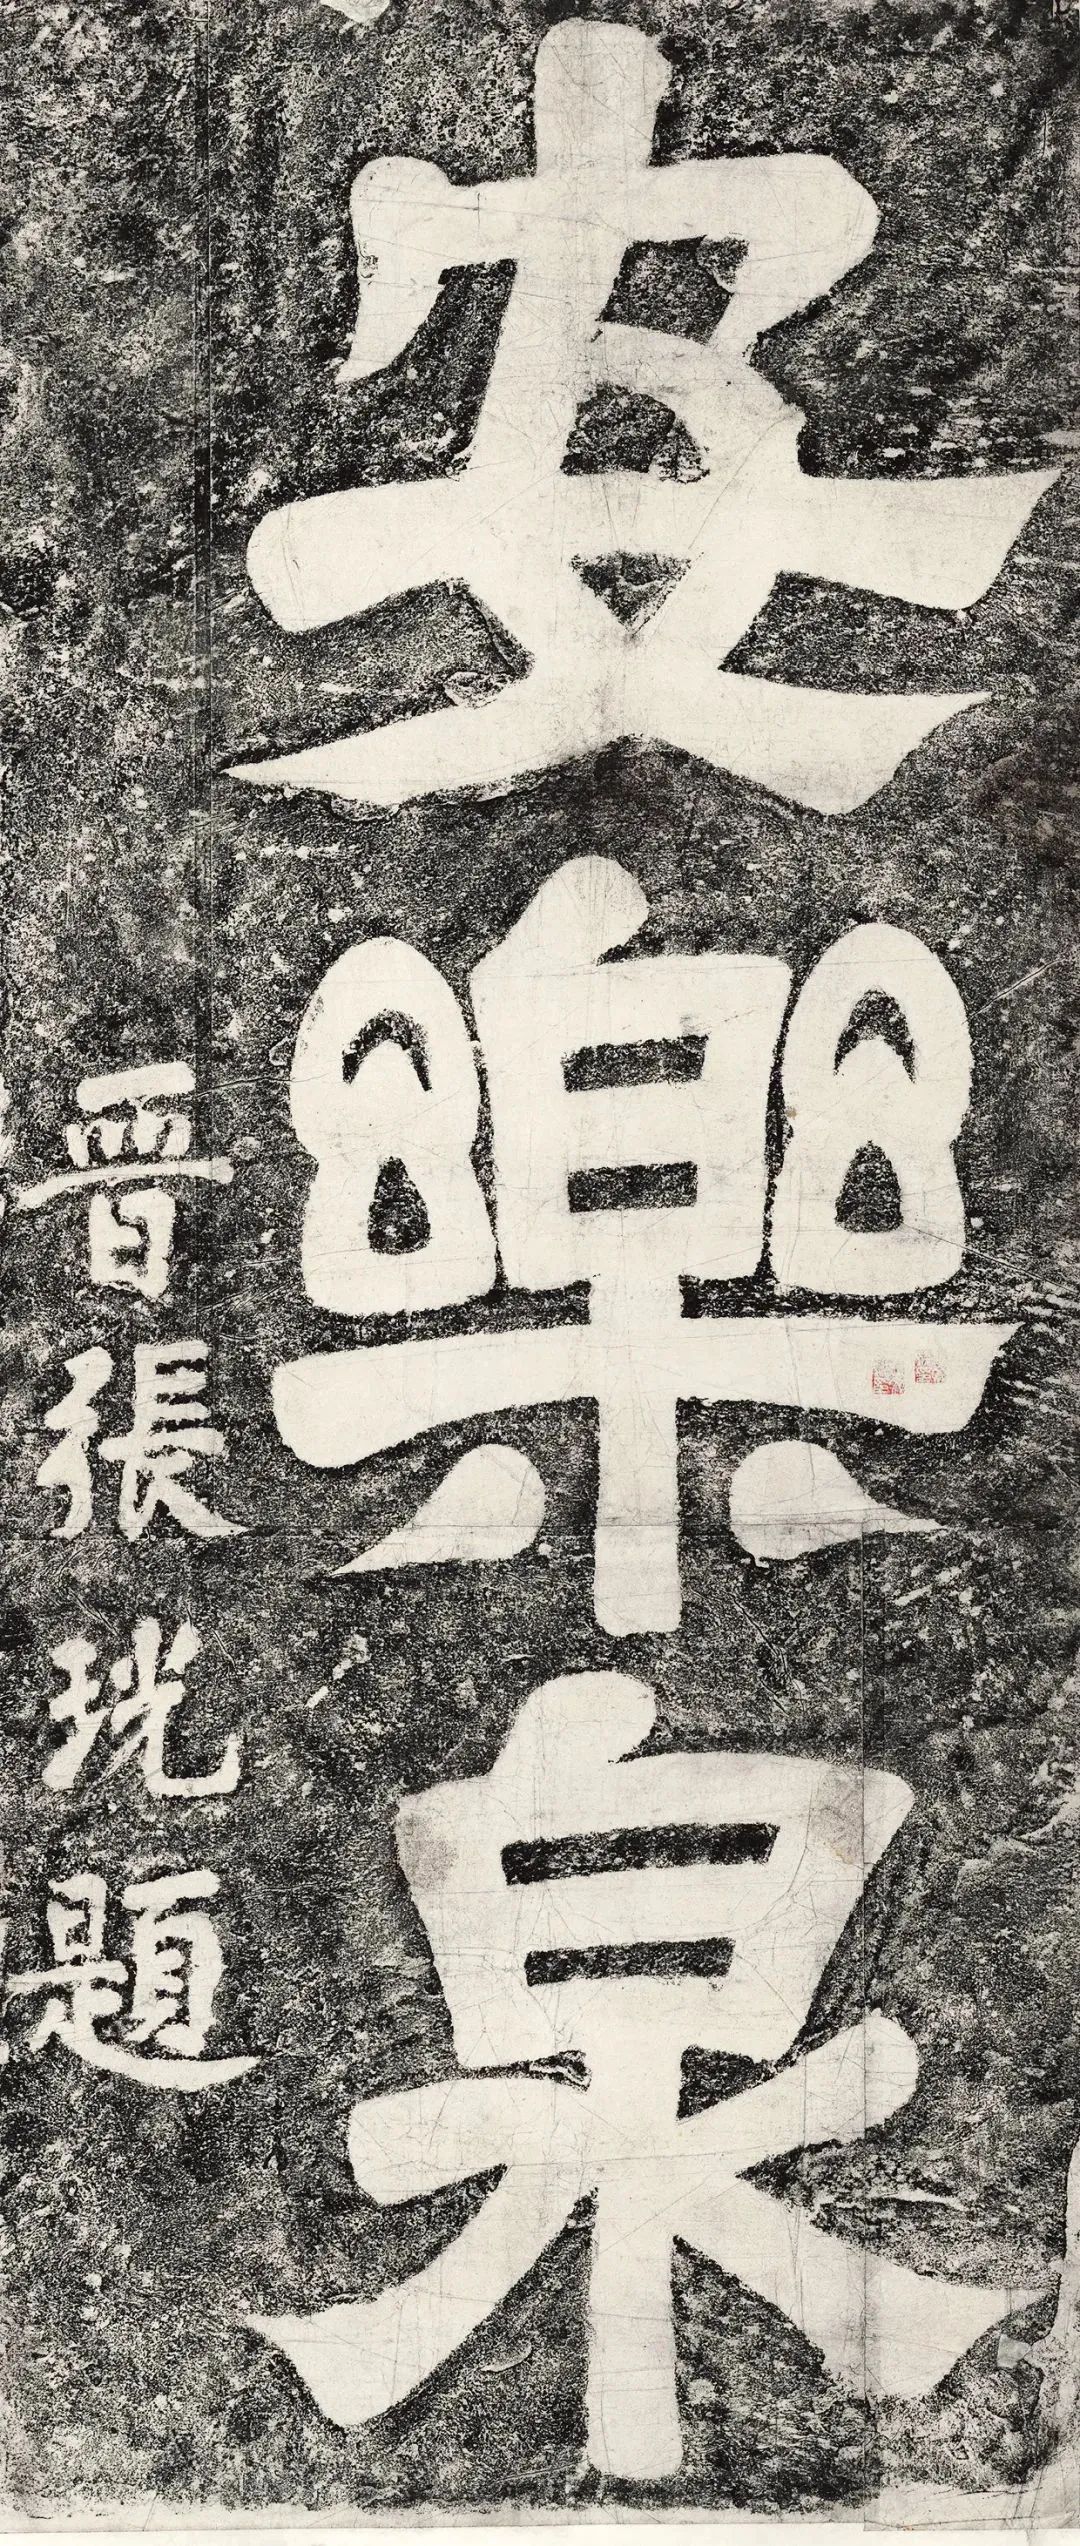 安樂泉
晉張珖題